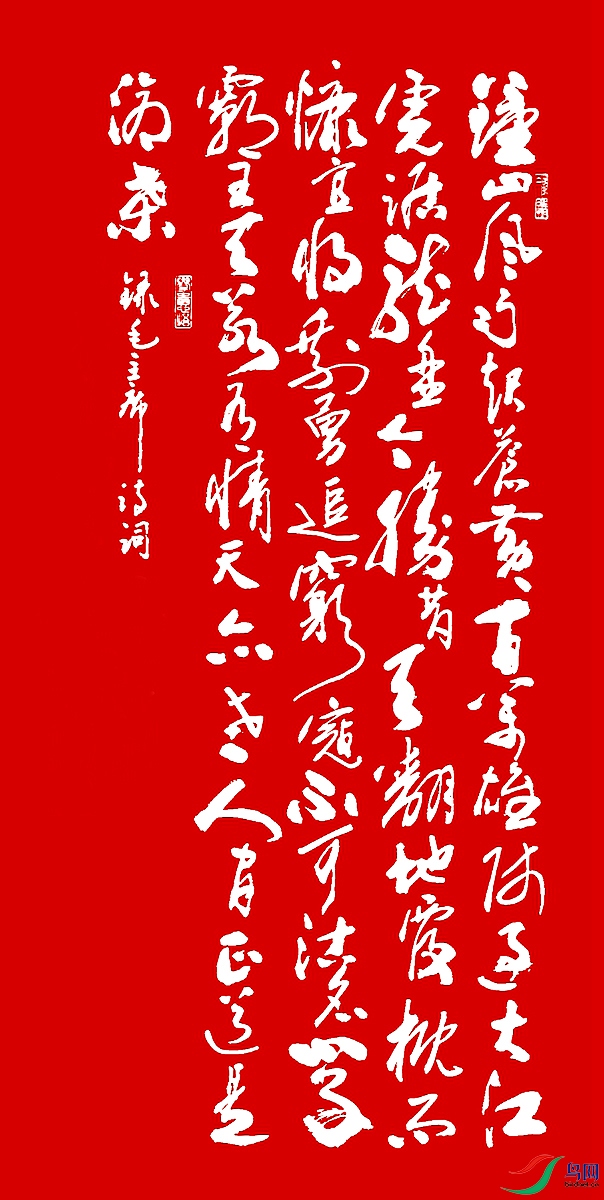 鐘山风雨起蒼黄百万雄师过大江
虎踞龙盘今勝昔天翻地覆慨而
慷宜将剩勇追窮寇不可沽名学
霸王天若有情天亦老人间正道是
沧桑
録毛主席诗词
鸟网